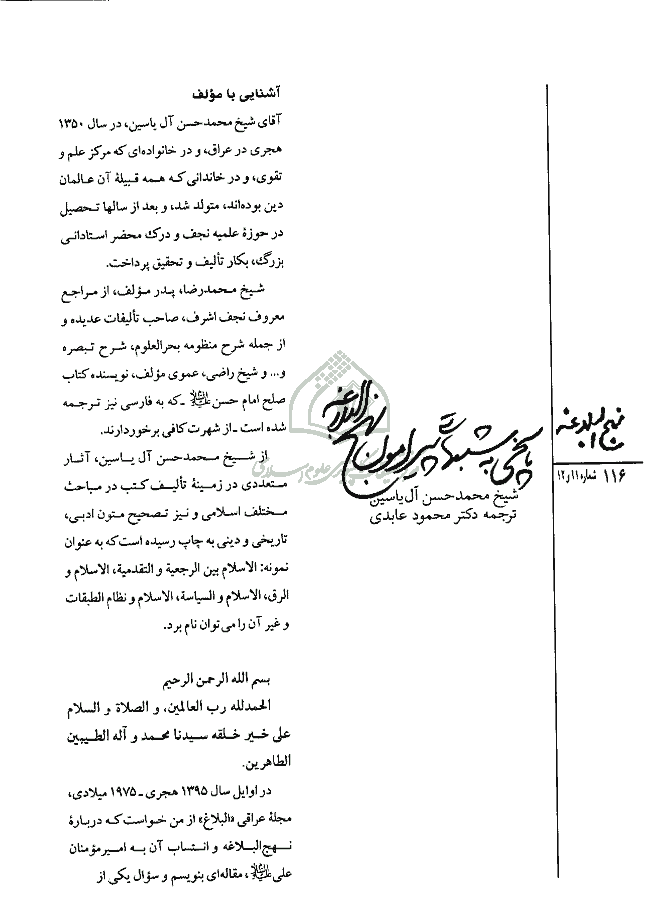 نهج البلاغه
۱۱۶ شماره ۱۱ و ۱۲
پاسخی به شبهاتی پیرامون نهج البلاغه
شیخ محمدحسن آل‌یاسین
ترجمه دکتر محمود عابدی
آشنایی با مؤلف
آقای شیخ محمدحسن آل یاسین، در سال ۱۳۵۰
هجری در عراق، و در خانواده‌ای که مرکز علم و
تقوی، و در خاندانی که همه قبیلهٔ آن عالمان
دین بوده‌اند، متولد شد، و بعد از سالها تحصیل
در حوزهٔ علمیه نجف و درک محضر استادانی
بزرگ، بکار تألیف و تحقیق پرداخت.
شیخ محمدرضا، پدر مؤلف، از مراجع
معروف نجف اشرف، صاحب تألیفات عدیده و
از جمله شرح منظومه بحرالعلوم، شرح تبصره
و... و شیخ راضی، عموی مؤلف، نویسنده کتاب
صلح امام حسن علیه‌السلام ـ که به فارسی نیز ترجمه
شده است ـ از شهرت کافی برخوردارند.
از شیخ محمدحسن آل یاسین، آثار
متعددی در زمینهٔ تألیف کتب در مباحث
مختلف اسلامی و نیز تصحیح متون ادبی،
تاریخی و دینی به چاپ رسیده است که به عنوان
نمونه: الاسلام بین الرجعیة و التقدمیة، الاسلام و
الرق، الاسلام و السیاسة، الاسلام و نظام الطبقات
و غیر آن را می‌توان نام برد.
بسم الله الرحمن الرحیم
الحمدلله رب العالمین، و الصلاة و السلام
علی خیر خلقه سیدنا محمد و آله الطیبین
الطاهرین.
در اوایل سال ۱۳۹۵ هجری ـ ۱۹۷۵ میلادی،
مجلهٔ عراقی «البلاغ» از من خواست که دربارهٔ
نهج‌البلاغه و انتساب آن به امیرمؤمنان
علی علیه‌السلام، مقاله‌ای بنویسم و سؤال یکی از